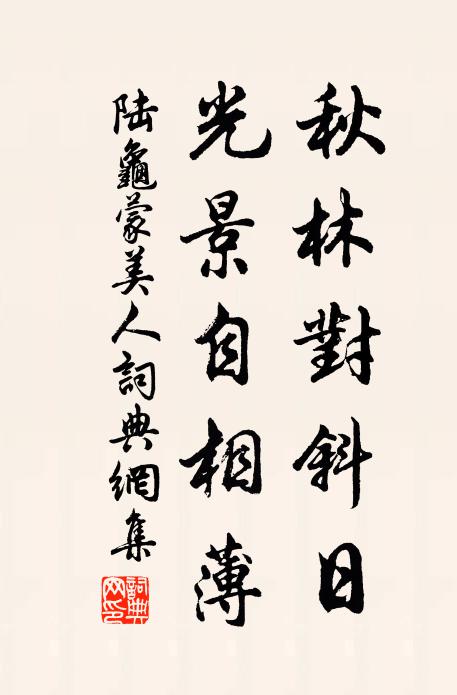 秋林對斜日
光景自相薄
陸龜蒙美人詞典網集
詞典网印